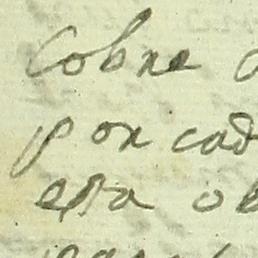 Cobre
por cad
esta ob